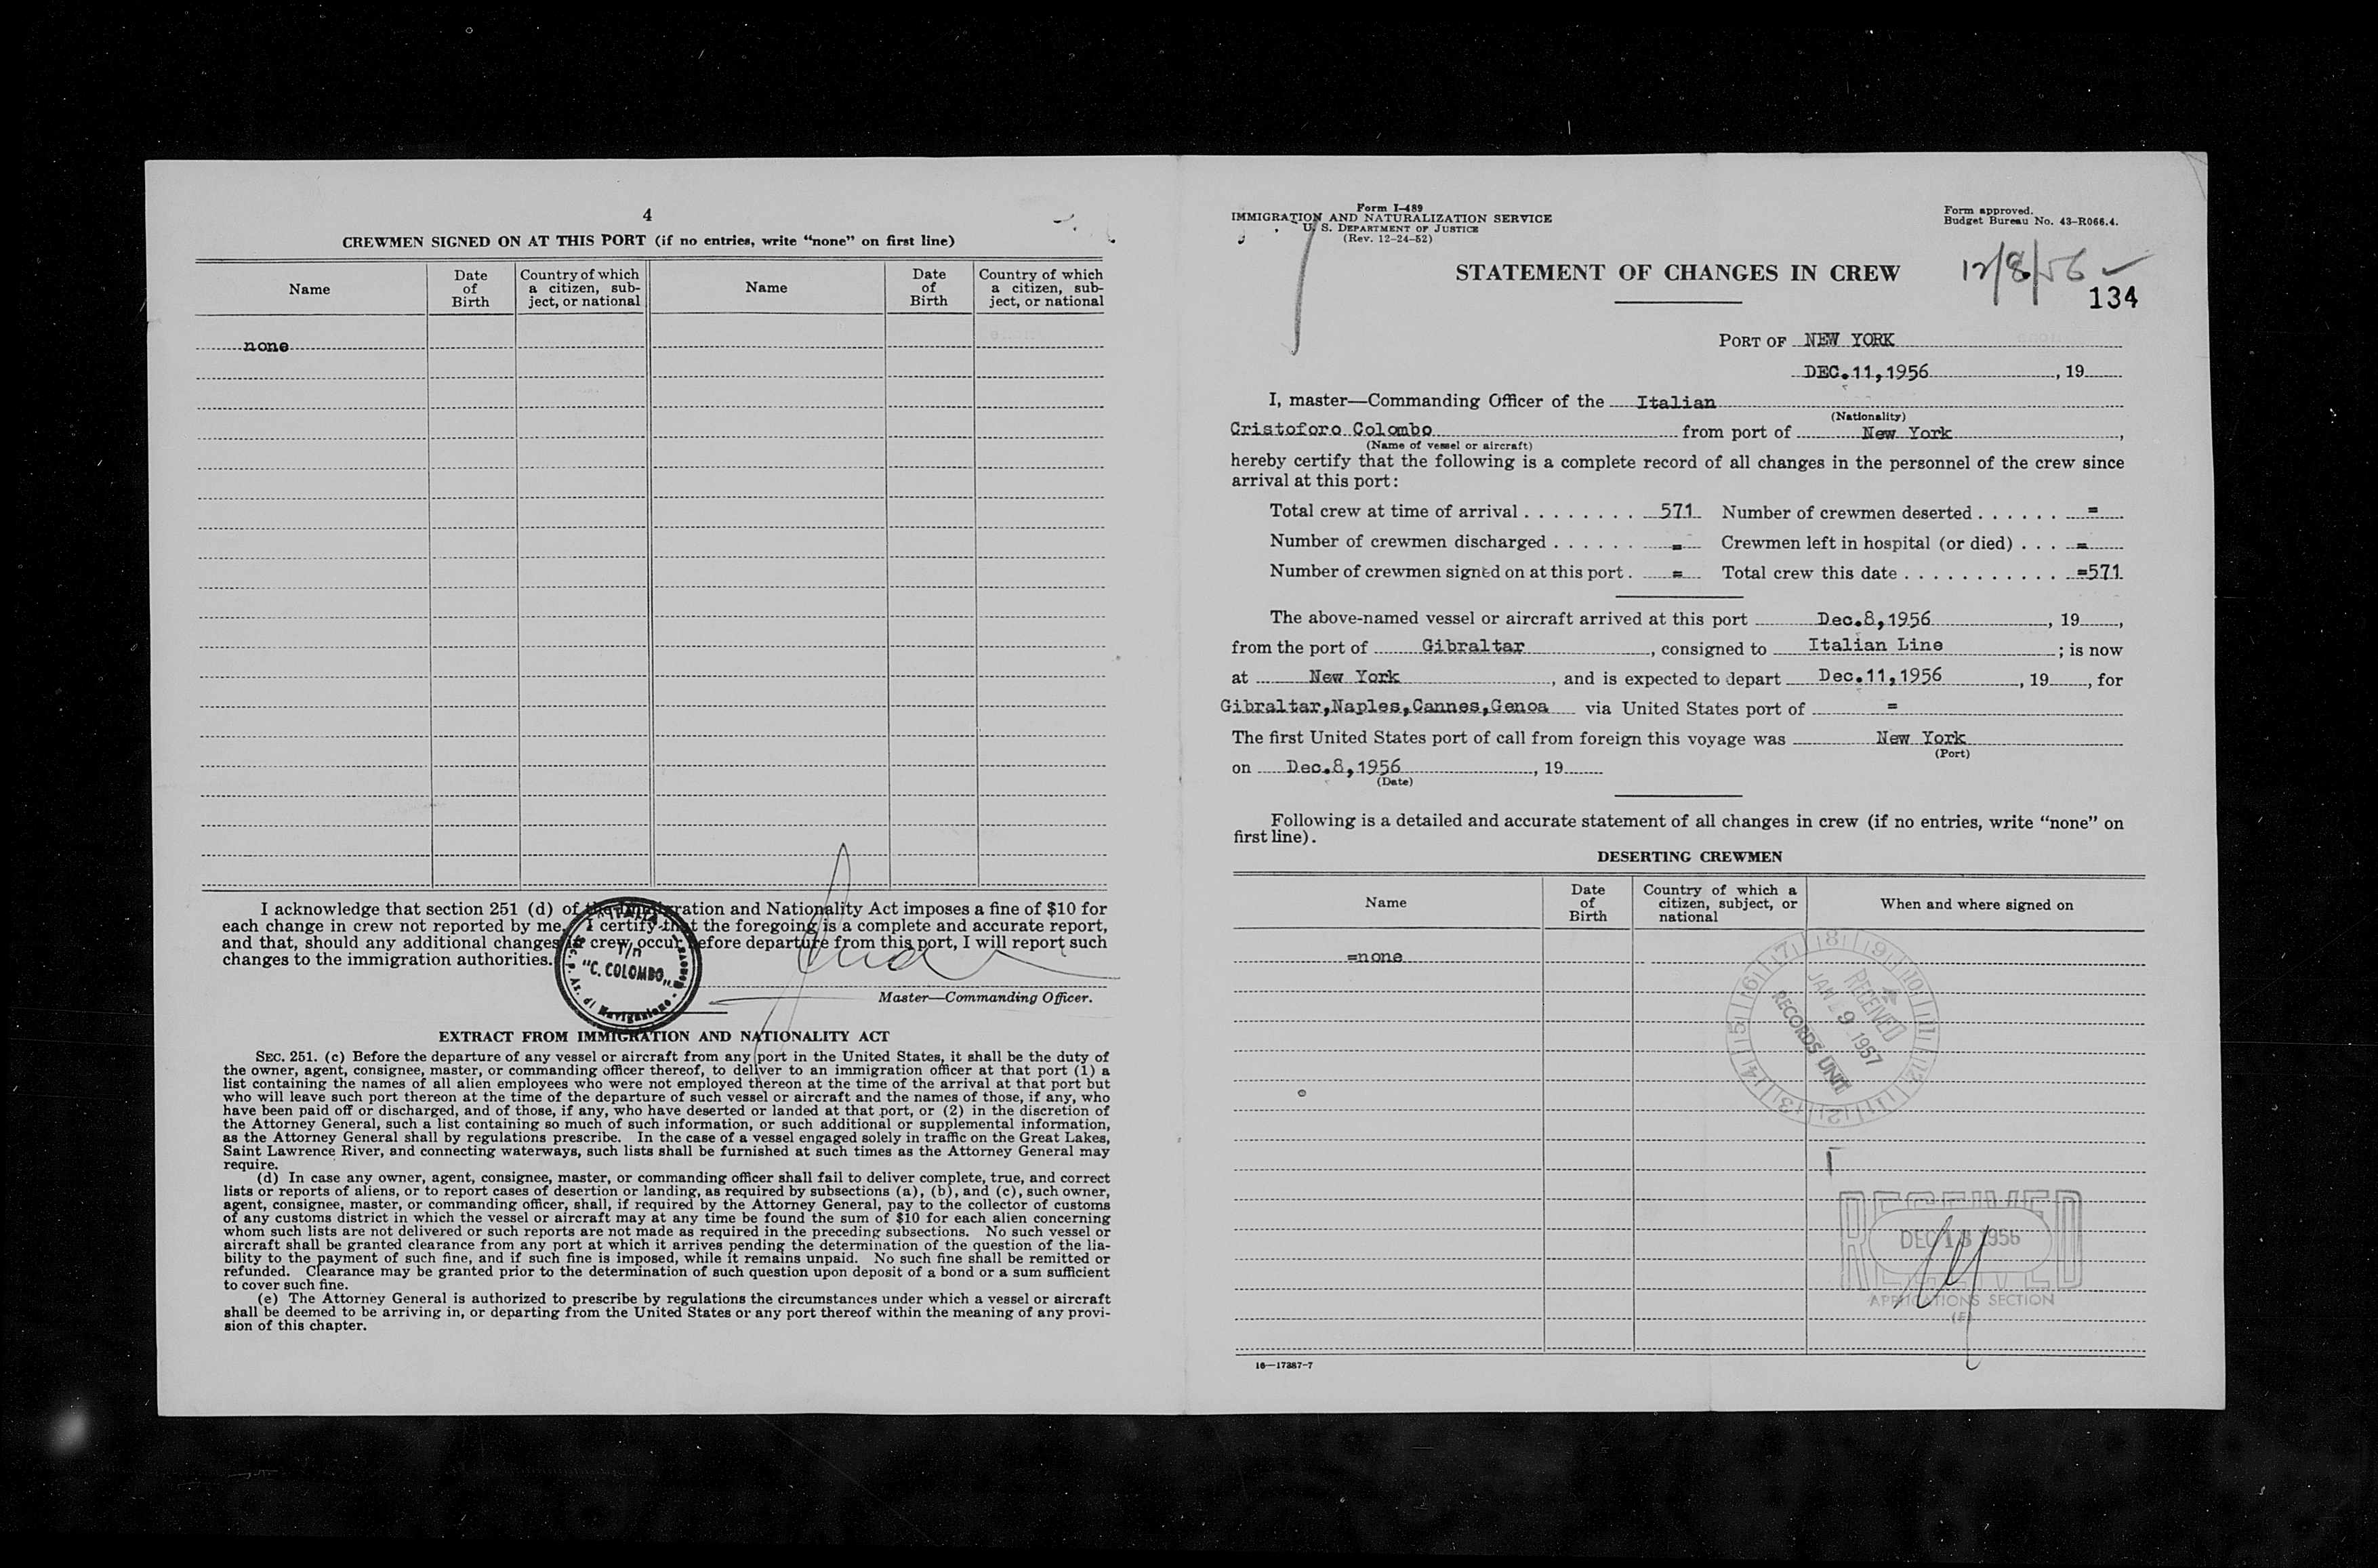 4
CREWMEN SIGNED ON AT THIS PORT (if no entries, write “none” on first line)
Name
Date of Birth
Country of which a citizen, sub-ject, or national
Name
Date of Birth
Country of which a citizen, sub-ject, or national
none
I acknowledge that section 251 (d) of the Immigration and Nationality Act imposes a fine of $10 for
each change in crew not reported by me. I certify that the foregoing is a complete and accurate report,
and that, should any additional changes in crew occur before departure from this port, I will report such
changes to the immigration authorities.
"ITALIA"
T/n
"C. COLOMBO"
Soc. p. Az. di Navigazione - Genova
Master—Commanding Officer.
EXTRACT FROM IMMIGRATION AND NATIONALITY ACT
SEC. 251. (c) Before the departure of any vessel or aircraft from any port in the United States, it shall be the duty of
the owner, agent, consignee, master, or commanding officer thereof, to deliver to an immigration officer at that port (1) a
list containing the names of all alien employees who were not employed thereon at the time of the arrival at that port but
who will leave such port thereon at the time of the departure of such vessel or aircraft and the names of those, if any, who
have been paid off or discharged, and of those, if any, who have deserted or landed at that port, or (2) in the discretion of
the Attorney General, such a list containing so much of such information, or such additional or supplemental information,
as the Attorney General shall by regulations prescribe. In the case of a vessel engaged solely in traffic on the Great Lakes,
Saint Lawrence River, and connecting waterways, such lists shall be furnished at such times as the Attorney General may
require.
(d) In case any owner, agent, consignee, master, or commanding officer shall fail to deliver complete, true, and correct
lists or reports of aliens, or to report cases of desertion or landing, as required by subsections (a), (b), and (c), such owner,
agent, consignee, master, or commanding officer, shall, if required by the Attorney General, pay to the collector of customs
of any customs district in which the vessel or aircraft may at any time be found the sum of $10 for each alien concerning
whom such lists are not delivered or such reports are not made as required in the preceding subsections. No such vessel or
aircraft shall be granted clearance from any port at which it arrives pending the determination of the question of the lia-
bility to the payment of such fine, and if such fine is imposed, while it remains unpaid. No such fine shall be remitted or
refunded. Clearance may be granted prior to the determination of such question upon deposit of a bond or a sum sufficient
to cover such fine.
(e) The Attorney General is authorized to prescribe by regulations the circumstances under which a vessel or aircraft
shall be deemed to be arriving in, or departing from the United States or any port thereof within the meaning of any provi-
sion of this chapter.
Form I-489
IMMIGRATION AND NATURALIZATION SERVICE
U. S. DEPARTMENT OF JUSTICE
(Rev. 12-24-52)
Form approved.
Budget Bureau No. 43-R066.4.
STATEMENT OF CHANGES IN CREW
12/8/56
134
PORT OF NEW YORK
DEC.11,1956, 19
I, master—Commanding Officer of the Italian
(Nationality)
Cristoforo Colombo from port of New York,
(Name of vessel or aircraft)
hereby certify that the following is a complete record of all changes in the personnel of the crew since
arrival at this port:
Total crew at time of arrival . . . . . . . . 571 Number of crewmen deserted . . . . . . =
Number of crewmen discharged . . . . . . = Crewmen left in hospital (or died) . . . =
Number of crewmen signed on at this port . = Total crew this date . . . . . . . . . . . =571
The above-named vessel or aircraft arrived at this port Dec.8,1956, 19,
from the port of Gibraltar, consigned to Italian Line; is now
at New York, and is expected to depart Dec.11,1956, 19, for
Gibraltar,Naples,Cannes,Genoa via United States port of =
The first United States port of call from foreign this voyage was New York
(Port)
on Dec.8,1956, 19
(Date)
Following is a detailed and accurate statement of all changes in crew (if no entries, write “none” on
first line).
DESERTING CREWMEN
Name
Date of Birth
Country of which a citizen, subject, or national
When and where signed on
=none
RECEIVED
JAN 9 1957
RECORDS UNIT
RECEIVED
DEC 1956
RECEIVED
APPLICATIONS SECTION
16—17387-7